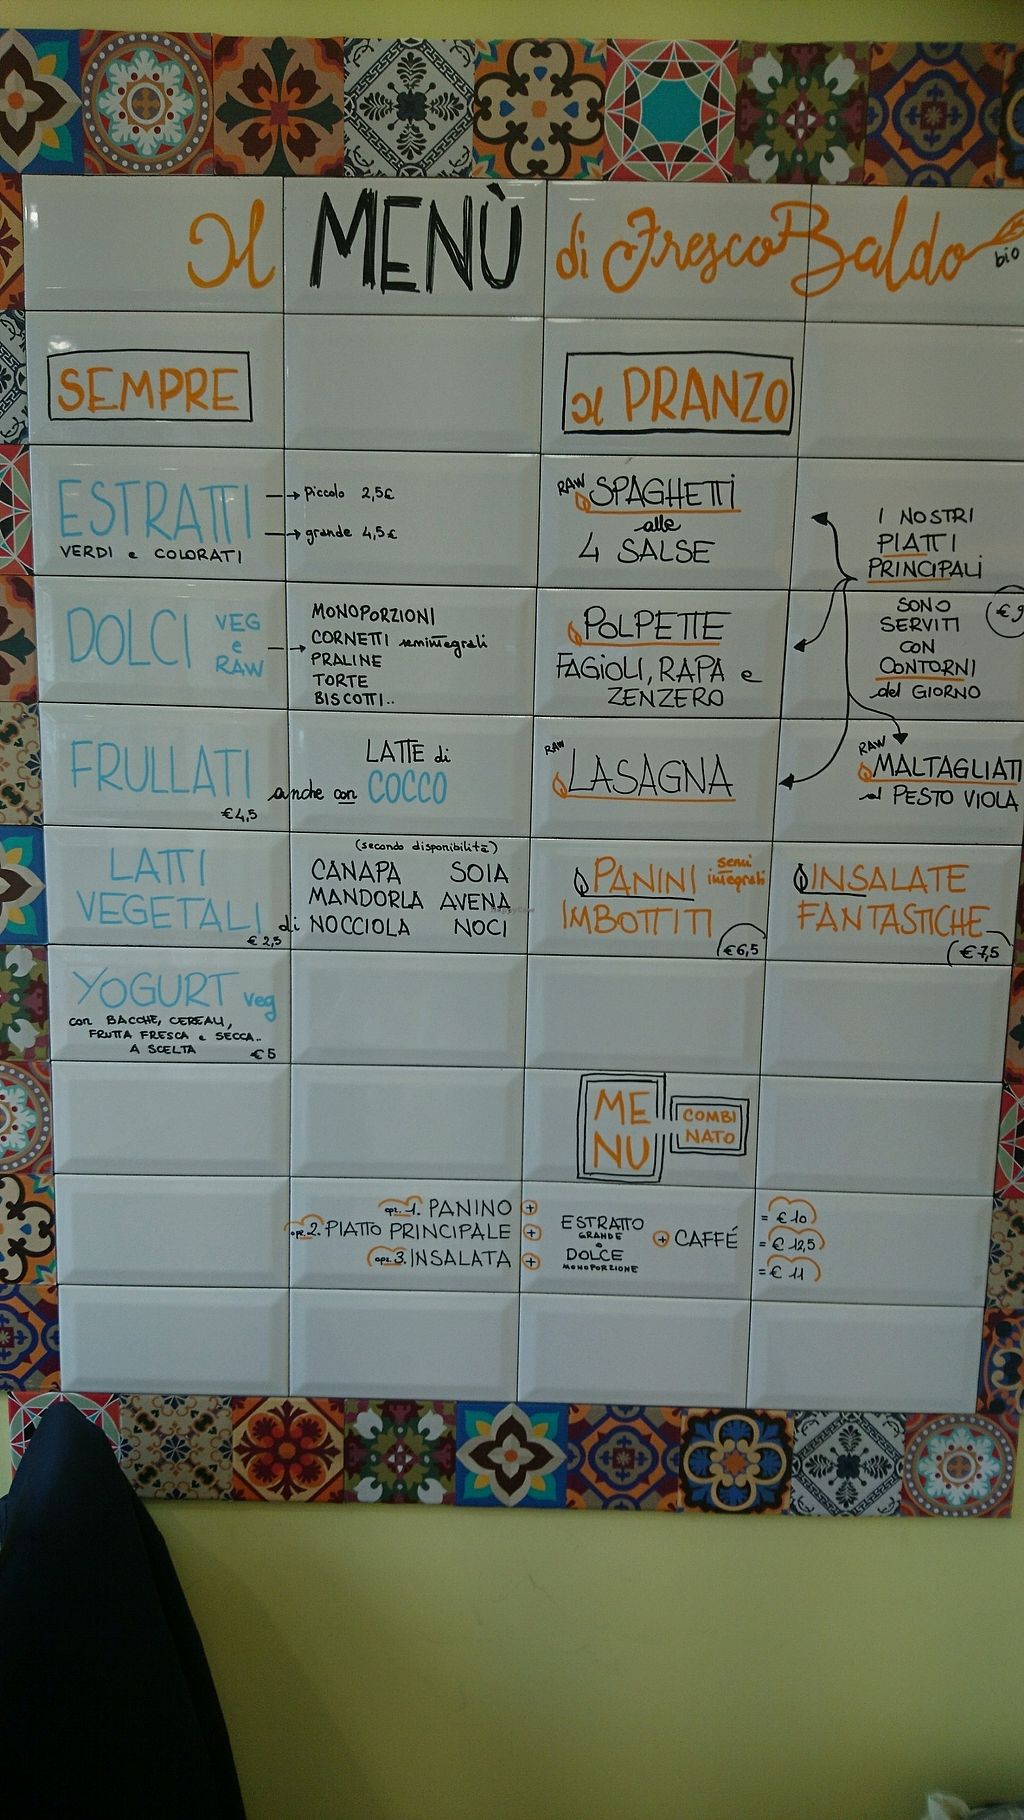 Il MENÙ di FrescoBaldo
bio
SEMPRE
ESTRATTI
VERDI e COLORATI
→ piccolo 2,5€
→ grande 4,5€
DOLCI VEG e RAW →
MONOPORZIONI
CORNETTI semintegrali
PRALINE
TORTE
BISCOTTI..
FRULLATI
€4,5
anche con
LATTE di
COCCO
LATTI
VEGETALI di
€ 2,5
(secondo disponibilità)
CANAPA SOIA
MANDORLA AVENA
NOCCIOLA NOCI
YOGURT veg
con BACCHE, CEREALI,
FRUTTA FRESCA e SECCA..
A SCELTA €5
Il PRANZO
RAW SPAGHETTI
alle
4 SALSE
POLPETTE
FAGIOLI, RAPA e
ZENZERO
RAW LASAGNA
I NOSTRI
PIATTI
PRINCIPALI
€ 9
SONO
SERVITI
CON
CONTORNI
del GIORNO
RAW
MALTAGLIATI
al PESTO VIOLA
PANINI semi integrali
IMBOTTITI
€6,5
INSALATE
FANTASTICHE
€ 7,5
MENU
COMBINATO
opz. 1. PANINO +
opz. 2. PIATTO PRINCIPALE +
opz. 3. INSALATA +
ESTRATTO
GRANDE
o
DOLCE
MONOPORZIONE
+ CAFFÉ
= € 10
= € 12,5
= € 11